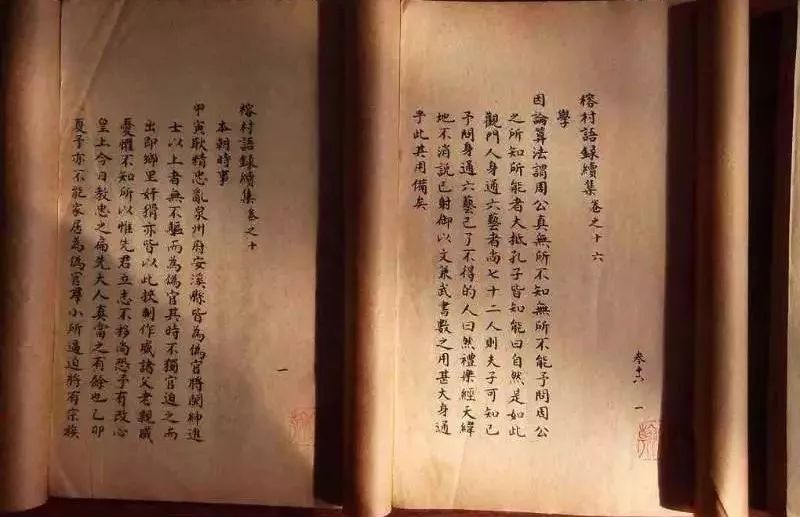 榕村語録續集卷之十六
學
因論算法謂周公真無所不知無所不能予問周公
之所知所能者大抵孔子皆知能曰自然是如此
觀門人身通六藝者尚七十二人則夫子可知已
予問身通六藝已了不得的人曰然禮樂經天緯
地不消説已射御以文兼武書數之用甚大身通
乎此其用備矣
卷十六 一
榕村語録續集卷之十
本朝時事
甲寅耿精忠亂泉州府安溪縣皆為偽官將紳進
士以上者無不驅而為偽官其時不獨官迫之而
出即鄉里奸猾亦皆以此挾制作威諸父老親戚
憂懼不知所以惟先君立志不移尚恐予有改心
皇上今日教忠之扁先夫人真當之有餘也乙卯
夏予亦不能家居為偽官羣小所逼迫將有宗族
一